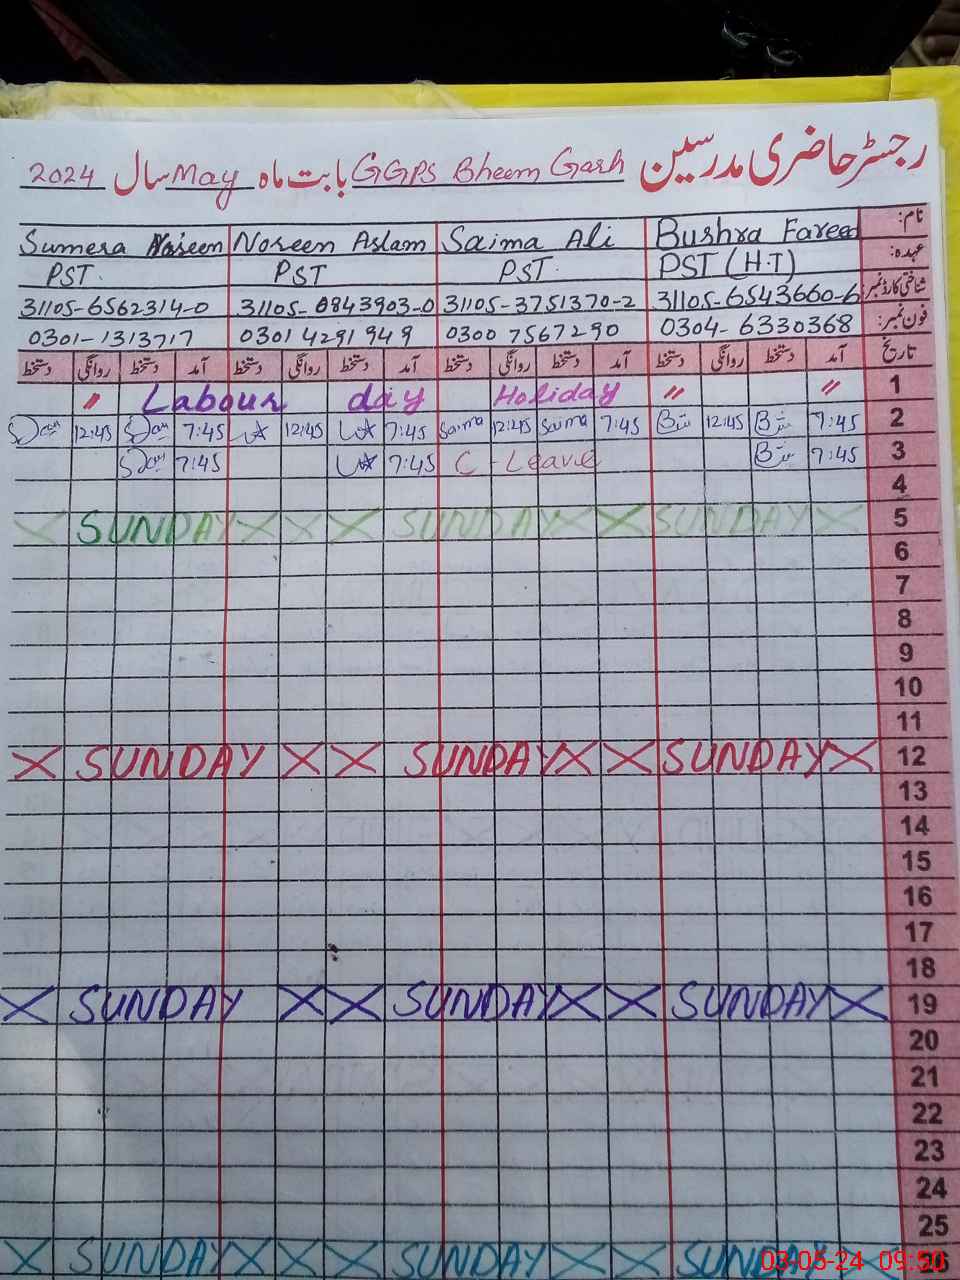 رجسٹر حاضری مدرسین GGPS Bheem Garh بابت ماہ May سال 2024
نام: Bushra Fareed Saima Ali Noreen Aslam Sumera Nasreen
عہدہ: PST (H.T) PST. PST PST.
شناختی کارڈ نمبر: 31105-6543660-6 31105-3751370-2 31105-0843903-0 31105-6562314-0
فون نمبر: 0304-6330368 0300 7567290 0301 4291949 0301-1313717
تاریخ آمد دستخط روانگی دستخط آمد دستخط روانگی دستخط آمد دستخط روانگی دستخط آمد دستخط روانگی دستخط
1 〃 Labour day Holiday 〃 〃
2 7:45 12:45 7:45 Saima 12:45 Saima 7:45 12:45 7:45 12:45
3 7:45 C-Leave 7:45 7:45
4
5 X SUNDAY X X X SUNDAY X X SUNDAY X
6
7
8
9
10
11
12 X SUNDAY X X SUNDAY X X SUNDAY X
13
14
15
16
17
18
19 X SUNDAY X X SUNDAY X X SUNDAY X
20
21
22
23
24
25
26 X SUNDAY X X X SUNDAY X X SUNDAY X
03-05-24 09:50